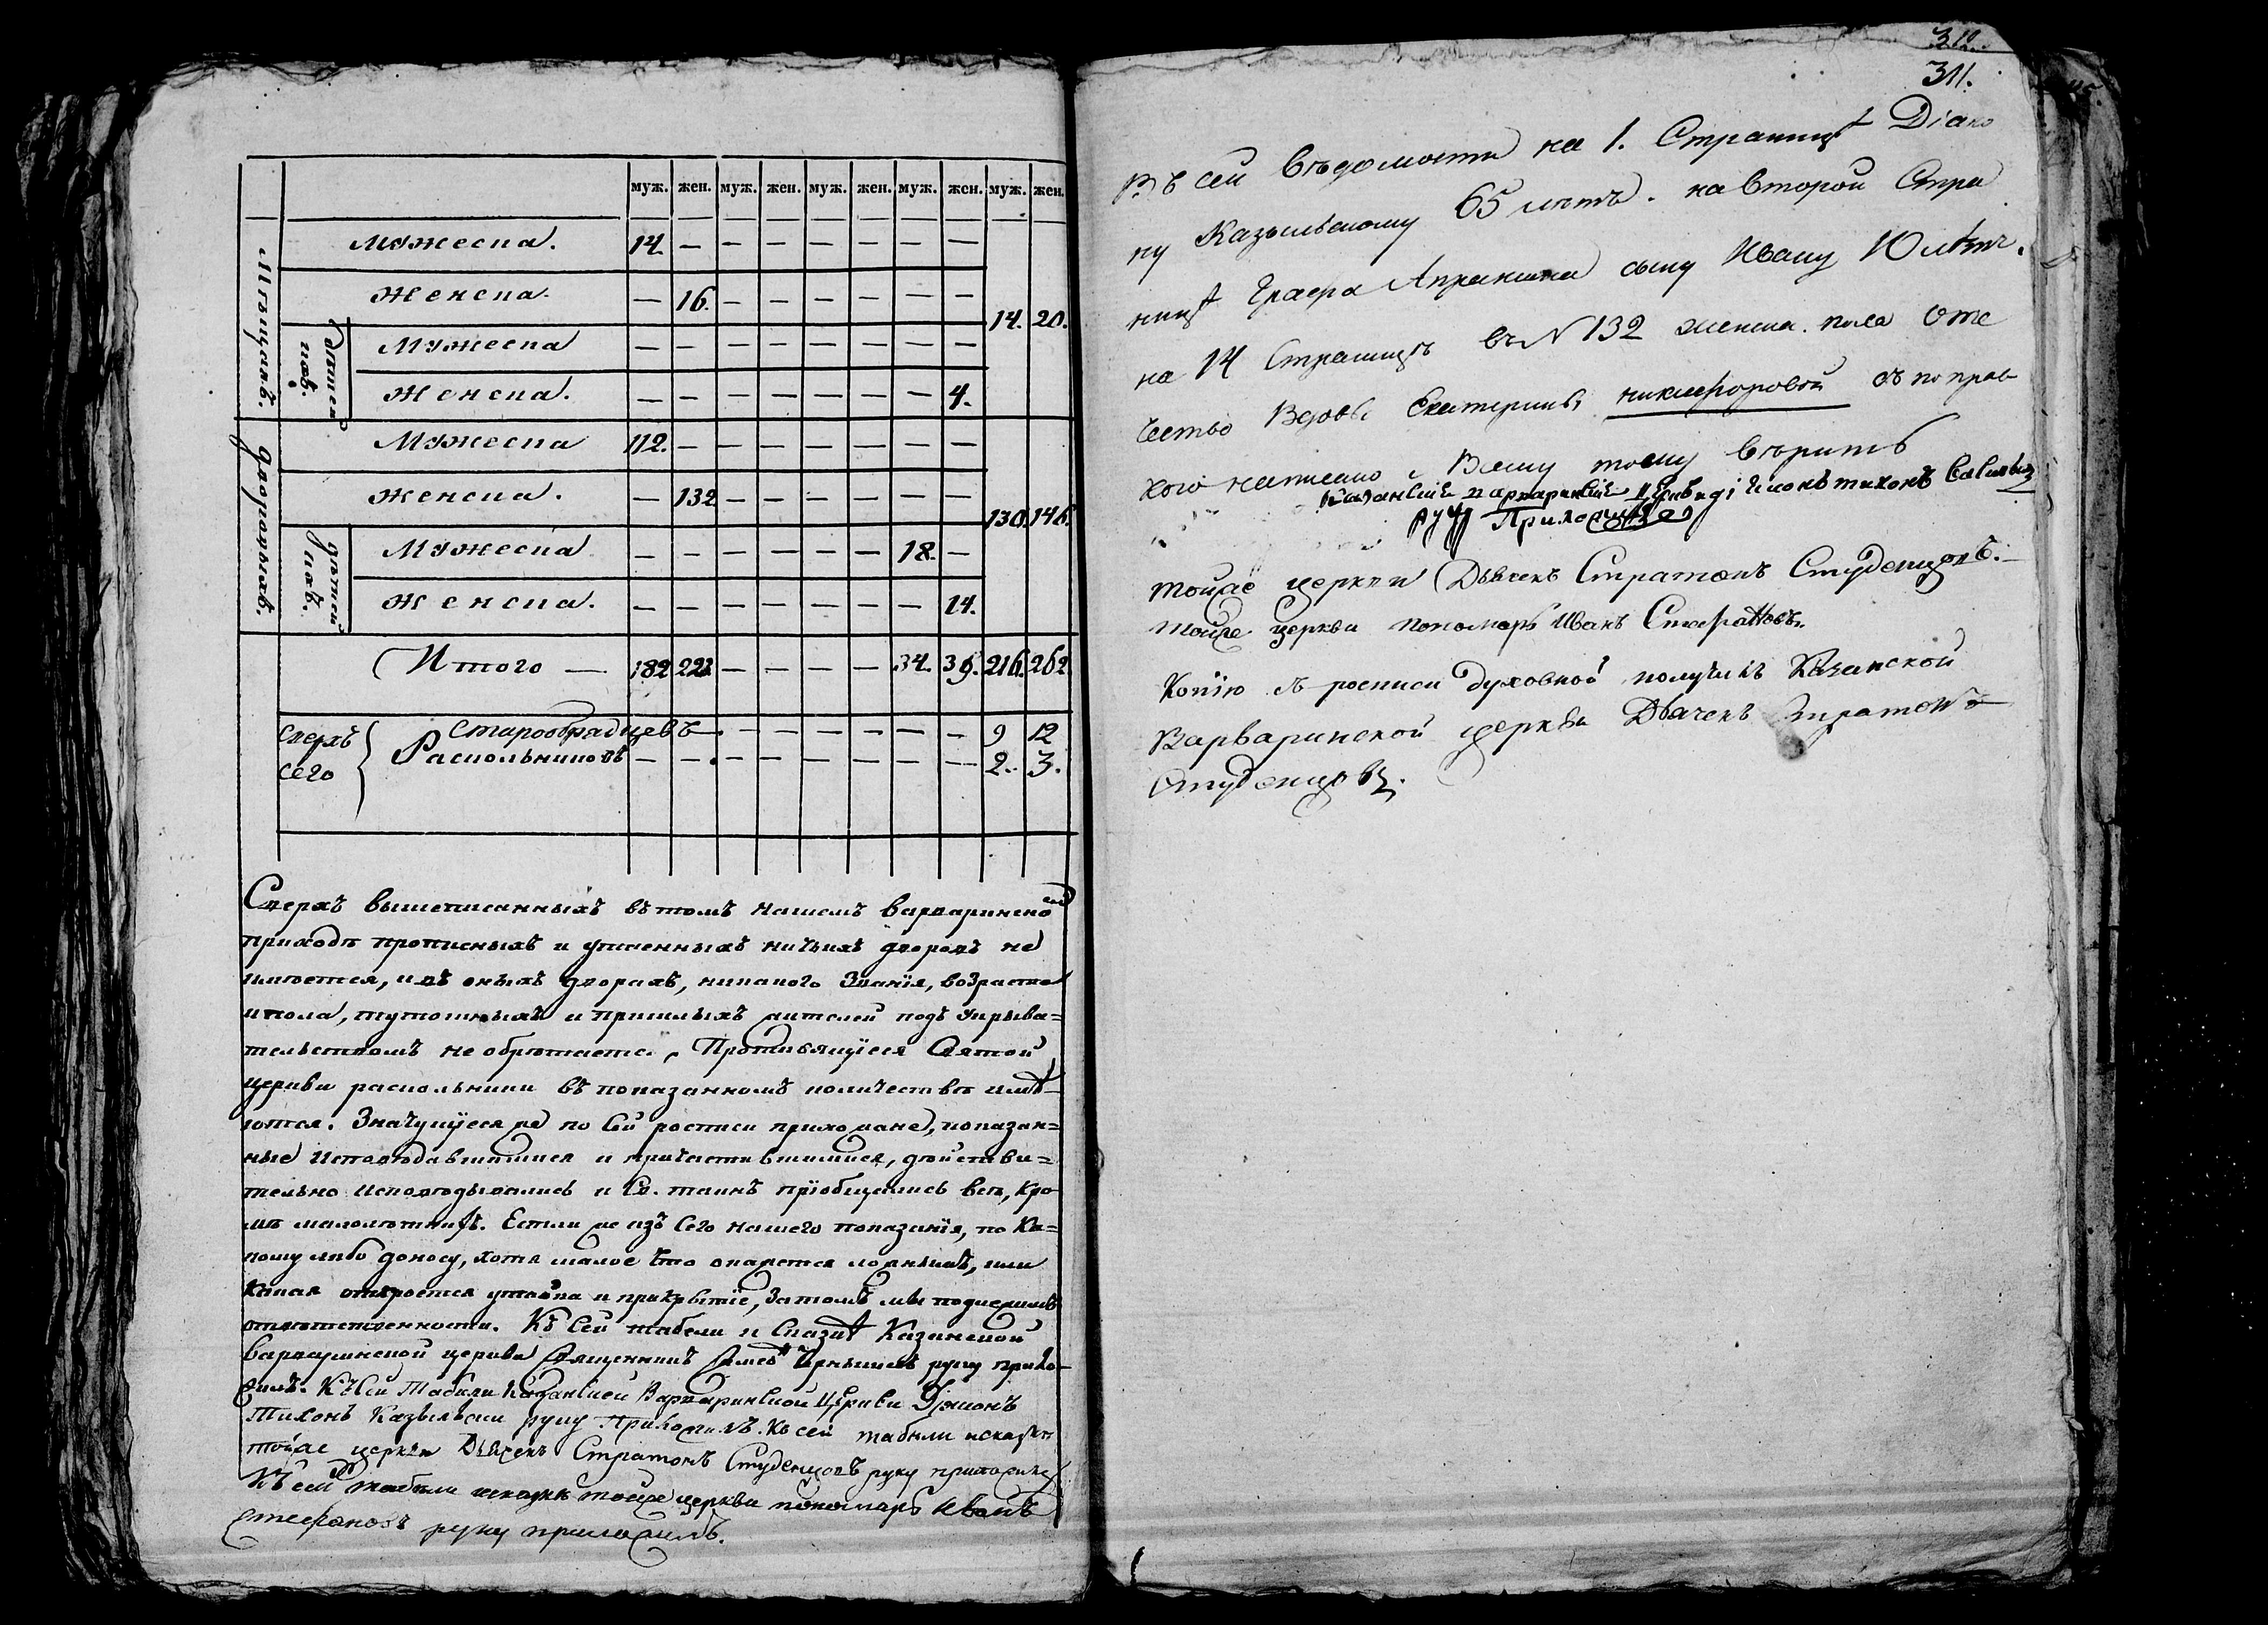 муж. жен. муж. жен. муж. жен. муж. жен. муж. жен.
Мѣщанъ.
Мужеска. 14. — — — — — — —
Женска. — 16. — — — — — —
14. 20.
Мужеска — — — — — — — —
Женска. — — — — — — — 4.
Дворовыхъ.
Мужеска 112. — — — — — — —
Женска. — 132 — — — — — —
130. 146.
Дѣтей ихъ.
Мужеска — — — — — — 18. —
Женска. — — — — — — — 14.
Итого — 182 223 — — — — 34. 39. 216. 262.
Сверхъ сего
Старообрядцевъ — — — — — — 9 12
Раскольниковъ — — — — — — — — 2. 3.
Сверхъ вышеписанныхъ въ томъ нашемъ Варваринско
приходѣ прописныхъ и утаенныхъ ничьихъ дворовъ не
имѣется, и въ оныхъ дворахъ, никакого званія, возраста
и пола, тутошныхъ и пришлыхъ жителей подъ укрыва=
тельствомъ не обрѣтается, Противящіеся Святой
церкви раскольники въ показанномъ количествѣ имѣ=
ются. Значущіеся же по сей росписи прихожане, показан=
ные исповѣдавшимися и причастившимися, дѣйстви=
тельно исповѣдывались и Св. таинъ пріобщались всѣ, кро
мѣ малолѣтнихъ. Естли же изъ сего нашего показанія, по ка=
кому либо доносу, хотя малое что окажется ложнымъ, или
какая откроется утайка и прикрытіе, за томъ мы подлежимъ
отвѣтственности. Къ сей табели и сказкѣ Казанской
Варваринской церкви Священникъ руку прило-
жилъ. Къ сей Табели Казанской Варваринской Церкви Діяконъ
Тихонъ Казыльски руку Приложилъ. Къ сей табели и сказкѣ
тойже церкви Дьячекъ Стратонъ Студенцовъ руку приложилъ
Къ сей табели и сказкѣ тойже церкви пономарь Иванъ
Стефановъ руку приложилъ.
310.
311.
Въ сей вѣдомости на 1. Страницѣ Діако
ну Казыльскому 65 лѣтъ. на второй Стра
ницѣ Графа Апраксина сыну Ивану 10 лѣтъ.
на 14 Страницѣ въ N 132 женска. пола оте
чество Вдовы Екатерины Никифоровой съ поправ
кою написано, Всему тому вѣрить
Казанскіе Варваринскіе Церкви діяконъ тихонъ
руку Приложилъ
тойже церкви Дьячекъ Стратонъ Студенцовъ.
тойже церкви пономарь Иванъ Стефановъ.
Копію съ росписи духовной получилъ Казанской
Варваринской церкви Дьячекъ Стратонъ
Студенцовъ.